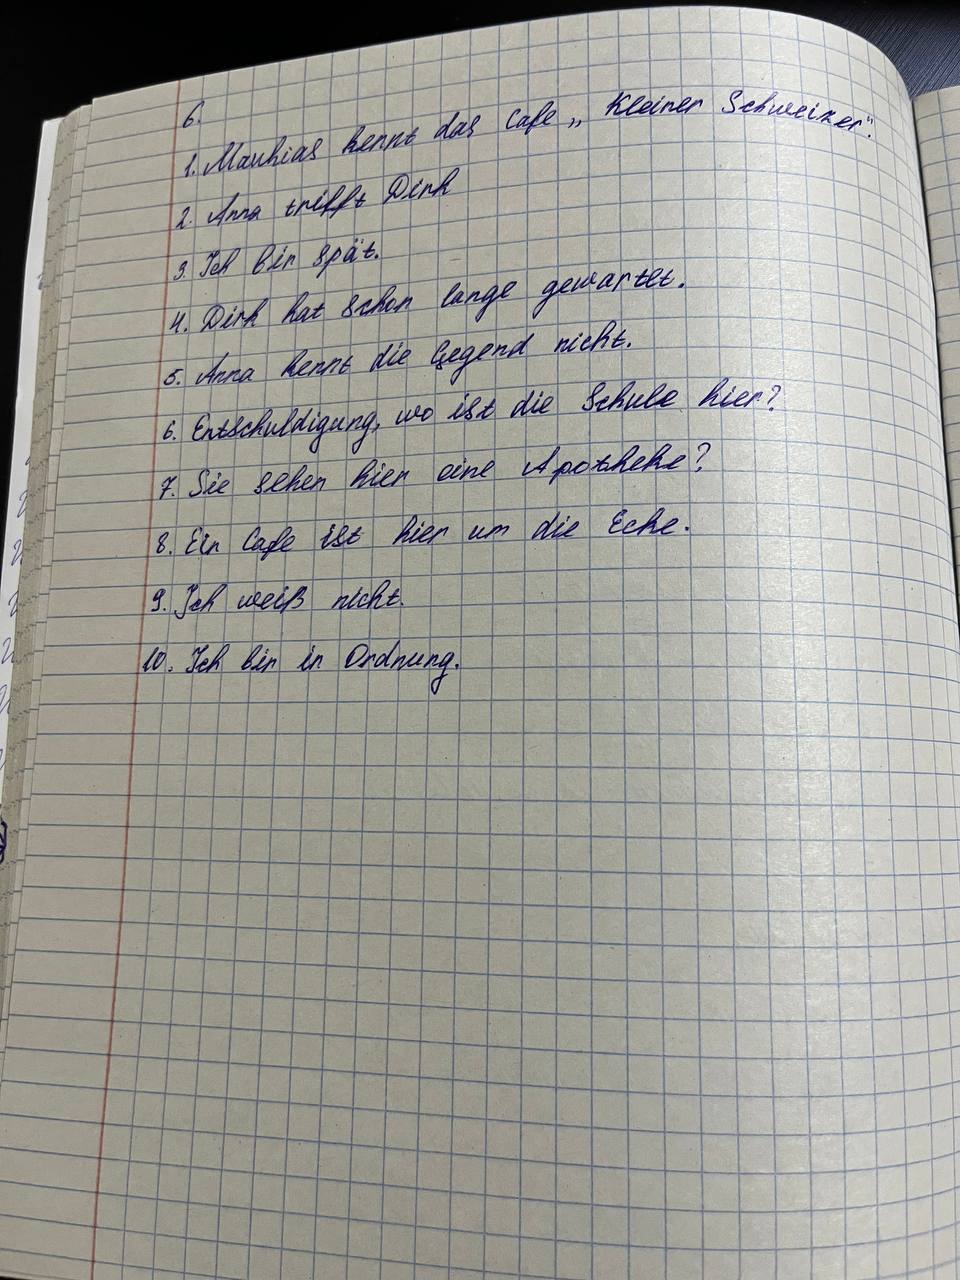 6.
1. Mauhias kennt das Cafe „ Kleiner Schweizer".
2. Anna trifft Dirk
3. Ich bin spät.
4. Dirk hat schon lange gewartet.
5. Anna kennt die Gegend nicht.
6. Entschuldigung, wo ist die Schule hier?
7. Sie sehen hier eine Apotheke?
8. Ein Cafe ist hier um die Ecke.
9. Ich weiß nicht.
10. Ich bin in Ordnung.